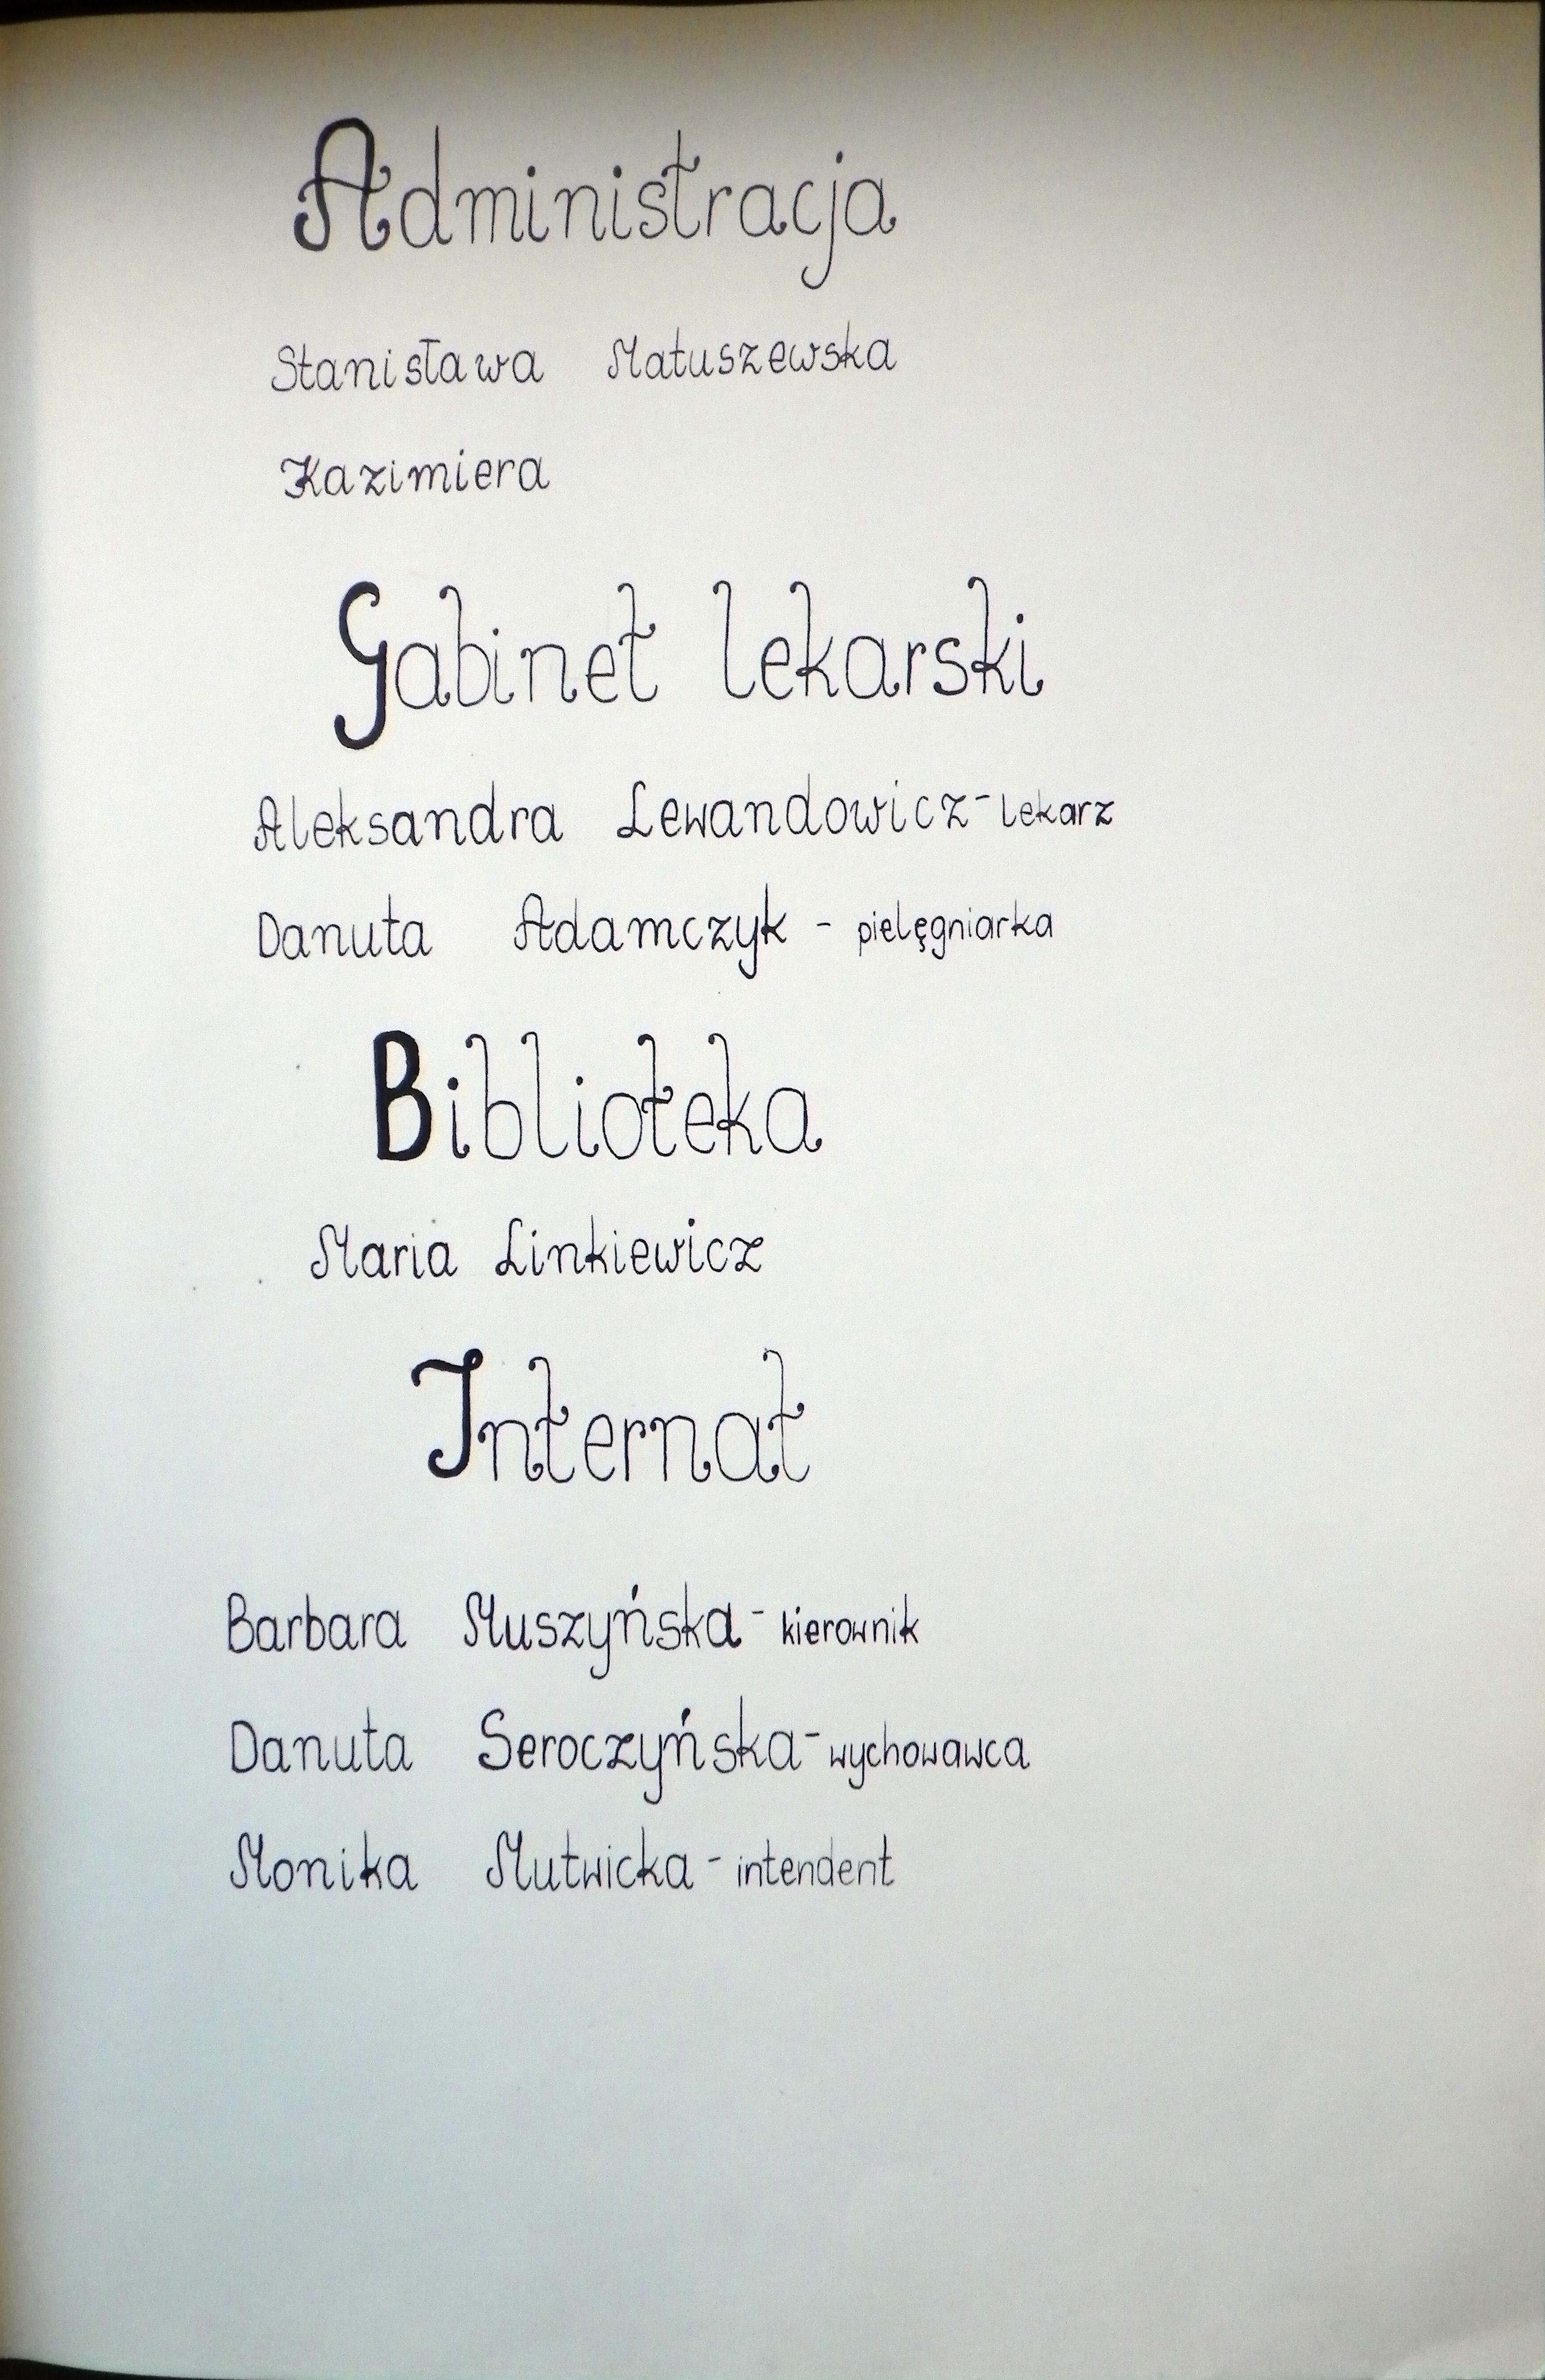 Administracja
Stanisława Matuszewska
Kazimiera
Gabinet lekarski
Aleksandra Lewandowicz - lekarz
Danuta Adamczyk - pielęgniarka
Biblioteka
Maria Linkiewicz
Internat
Barbara Muszyńska - kierownik
Danuta Seroczyńska - wychowawca
Monika Mutwicka - intendent